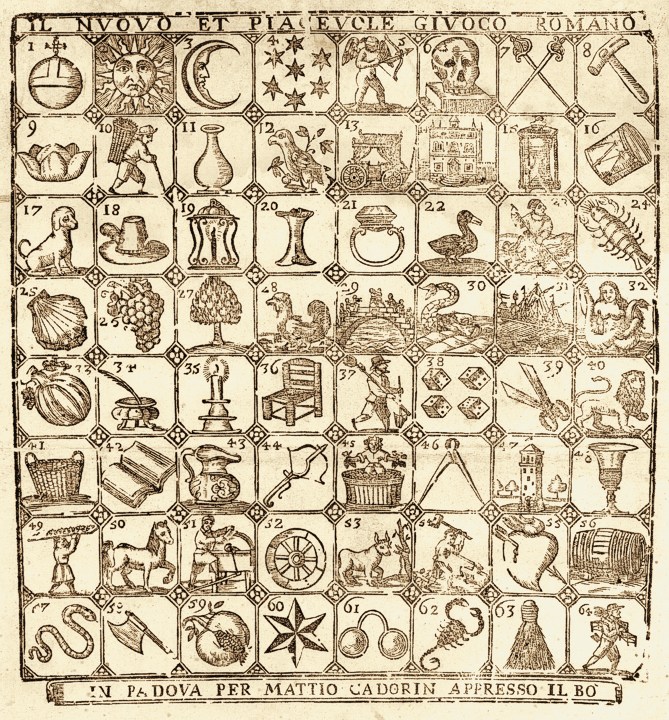 IL NVOVO ET PIACEVOLE GIVOCO ROMANO
1 2 3 4 5 6 7 8
9 10 11 12 13 14 15 16
17 18 19 20 21 22 23 24
25 26 27 28 29 30 31 32
33 34 35 36 37 38 39 40
41 42 43 44 45 46 47 48
49 50 51 52 53 54 55 56
57 58 59 60 61 62 63 64
IN PADOVA PER MATTIO CADORIN APPRESSO IL BO